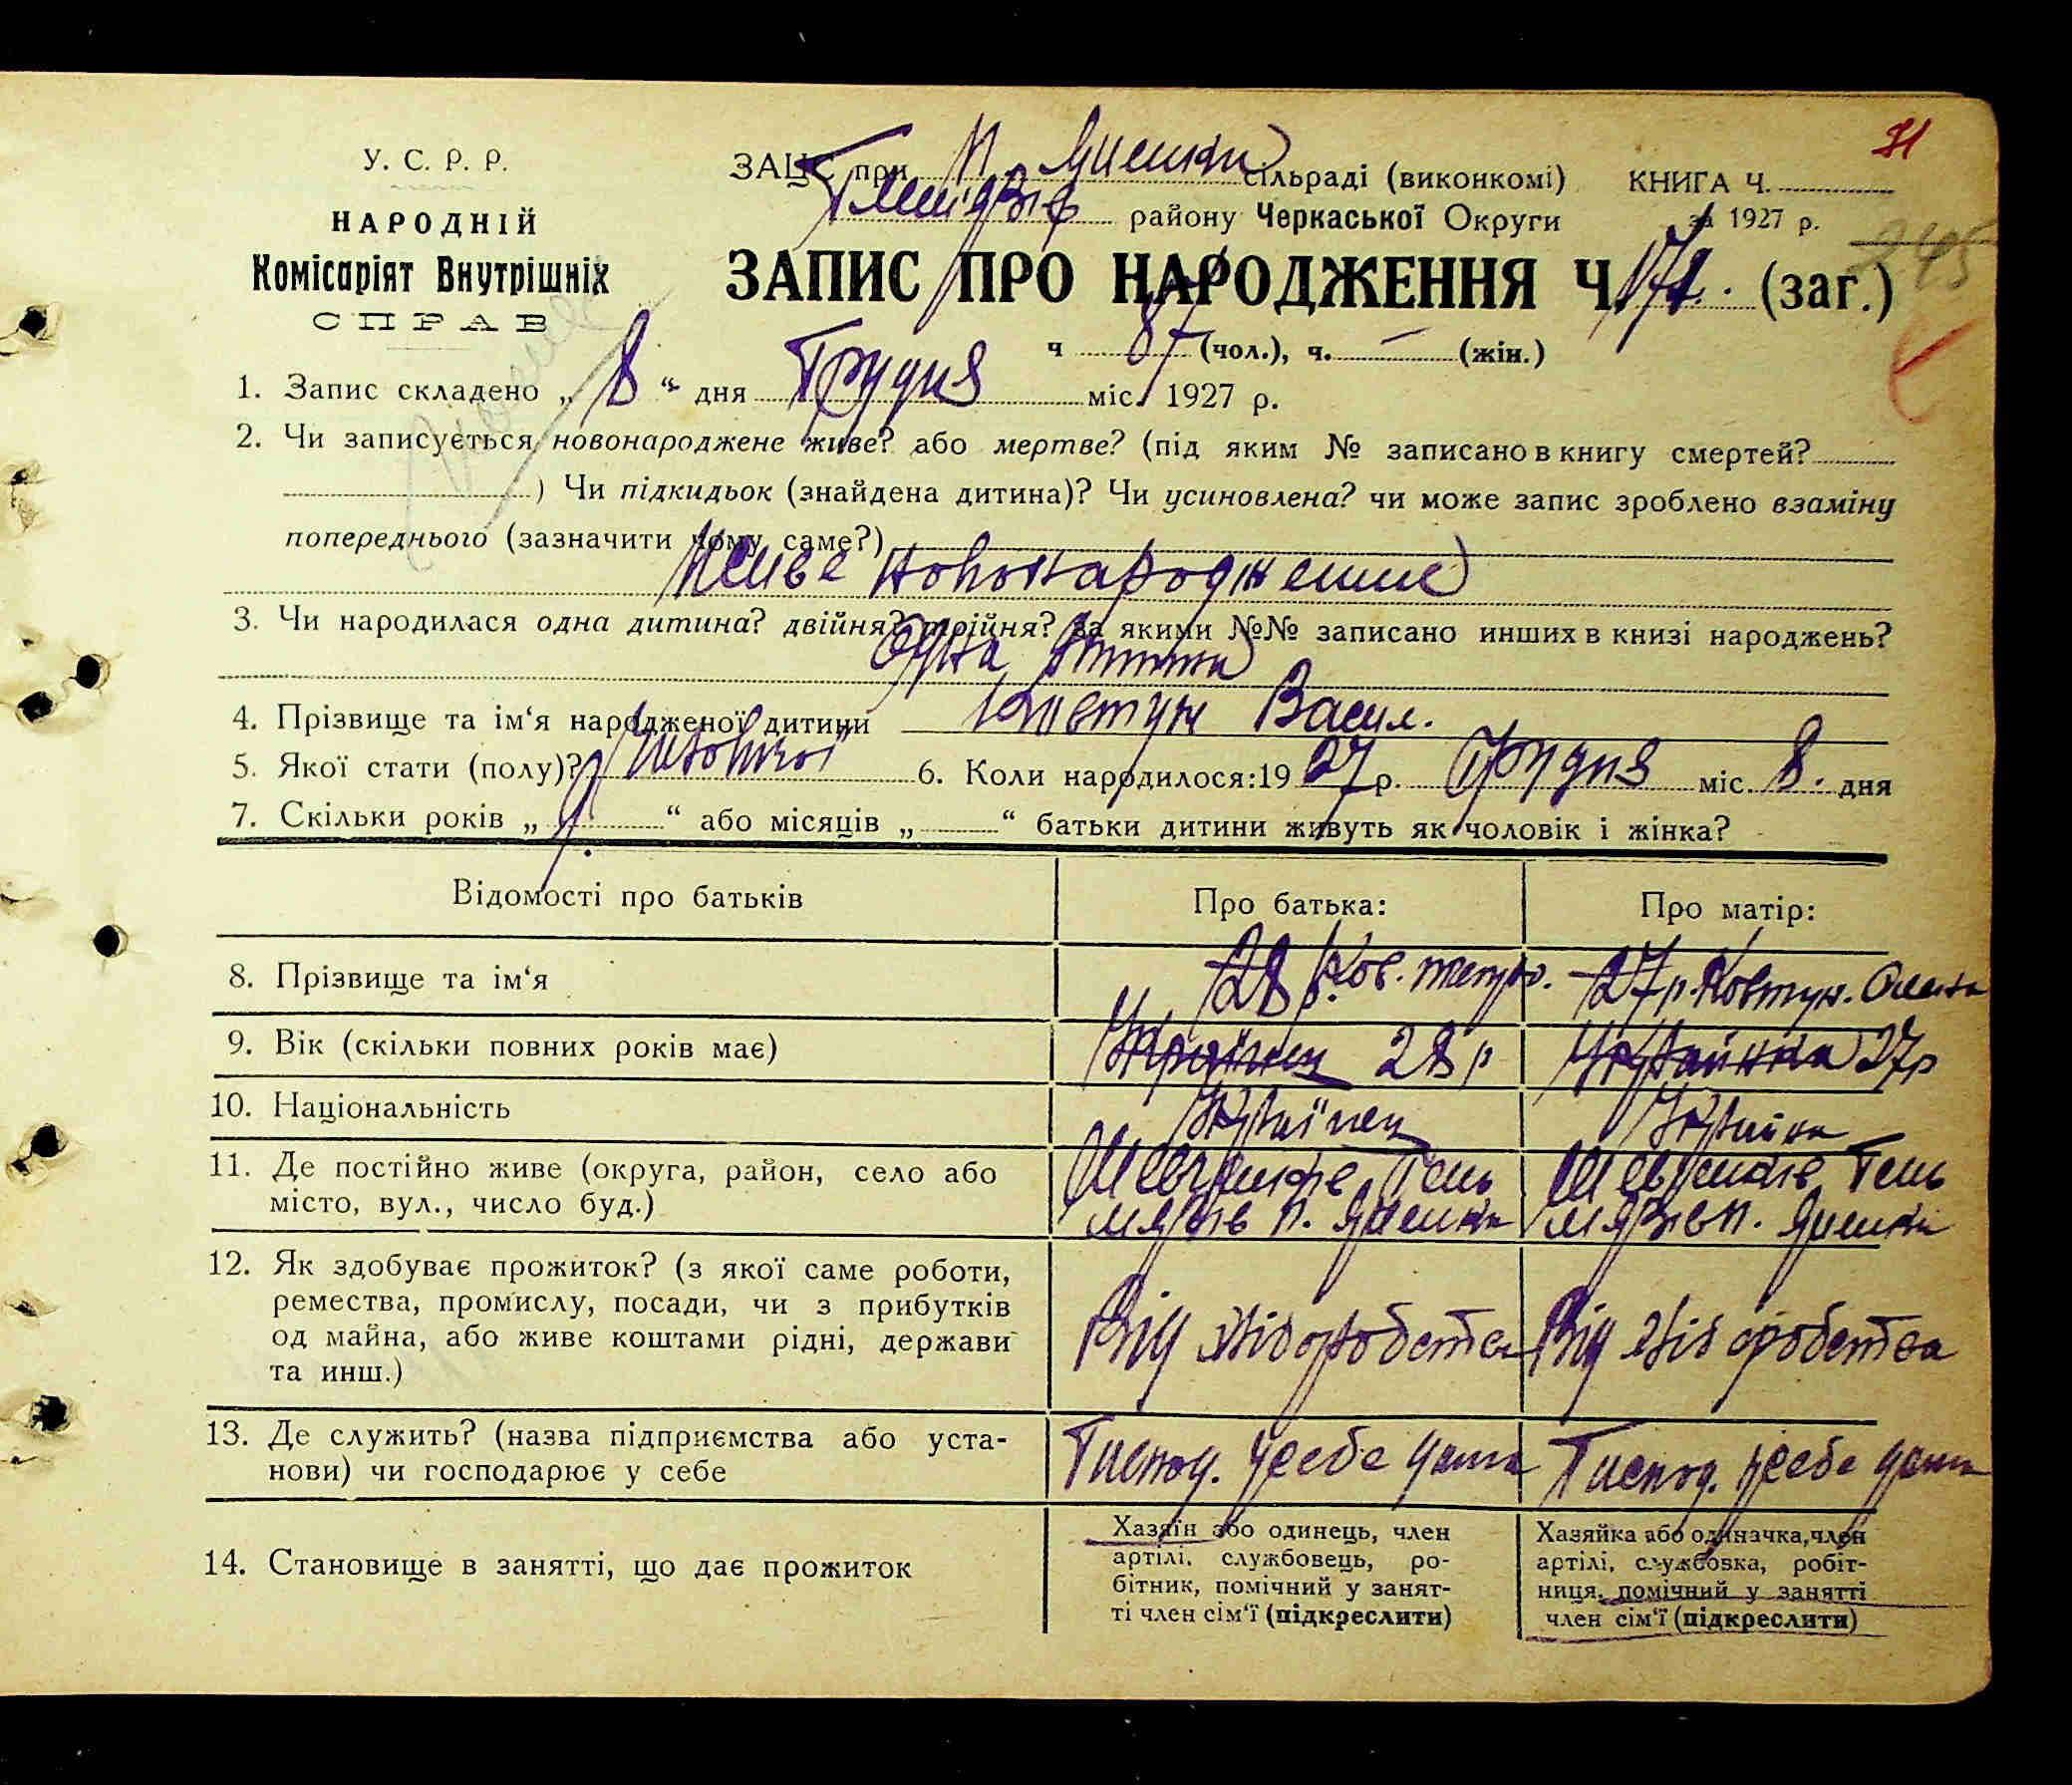 31
У. С. Р. Р.
НАРОДНІЙ
Комісаріят Внутрішніх
СПРАВ
ЗАЦС при сільраді (виконкомі) КНИГА Ч.
району Черкаської Округи за 1927 р.
245
ЗАПИС ПРО НАРОДЖЕННЯ Ч. (заг.)
ч 87 (чол.), ч. — (жін.)
1. Запис складено „ 8 “ дня Грудня міс. 1927 р.
2. Чи записується новонароджене живе? або мертве? (під яким № записано в книгу смертей?
) Чи підкидьок (знайдена дитина)? Чи усиновлена? чи може запис зроблено взаміну
попереднього (зазначити чому саме?)
Живе новонароджене
3. Чи народилася одна дитина? двійня? трійня? за якими №№ записано инших в книзі народжень?
Одна дитина
4. Прізвище та ім‘я народженої дитини Ковтун Васил.
5. Якої стати (полу)? 6. Коли народилося: 19 27 р. Грудня міс. 8. дня
7. Скільки років „ “ або місяців „ “ батьки дитини живуть як чоловік і жінка?
Відомості про батьків Про батька: Про матір:
8. Прізвище та ім‘я 28 р. 27 р. Ковтун.
9. Вік (скільки повних років має) Українец 28 р Українка 27 р
10. Національність Українец Українка
11. Де постійно живе (округа, район, село або
місто, вул., число буд.)
12. Як здобуває прожиток? (з якої саме роботи,
ремества, промислу, посади, чи з прибутків
од майна, або живе коштами рідні, держави
та инш.)
Від хліборобства Від хліборобства
13. Де служить? (назва підприємства або уста-
нови) чи господарює у себе
14. Становище в занятті, що дає прожиток
Хазяїн або одинець, член
артілі, службовець, ро-
бітник, помічний у занят-
ті член сім‘ї (підкреслити)
Хазяйка або одиначка, член
артілі, службовка, робіт-
ниця, помічний у занятті
член сім‘ї (підкреслити)